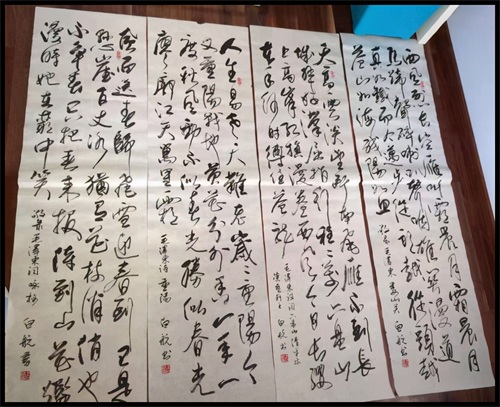 西风烈长空雁叫霜晨月霜晨月
马蹄声碎喇叭声咽雄关漫道
真如铁而今迈步从头越从头越
苍山如海残阳如血 毛泽东词娄山关 白航书
天高云淡望断南飞雁不到长
城非好汉屈指行程二万六盘山
上高峰红旗漫卷西风今日长缨
在手何时缚住苍龙
毛泽东词六盘山清平乐
白航书
人生易老天难老岁岁重阳今
又重阳战地黄花分外香一年一
度秋风劲不似春光胜似春光
寥廓江天万里霜 毛泽东词重阳 白航书
风雨送春归飞雪迎春到已是
悬崖百丈冰犹有花枝俏俏也
不争春只把春来报待到山花烂
漫时她在丛中笑 毛泽东词咏梅 白航书